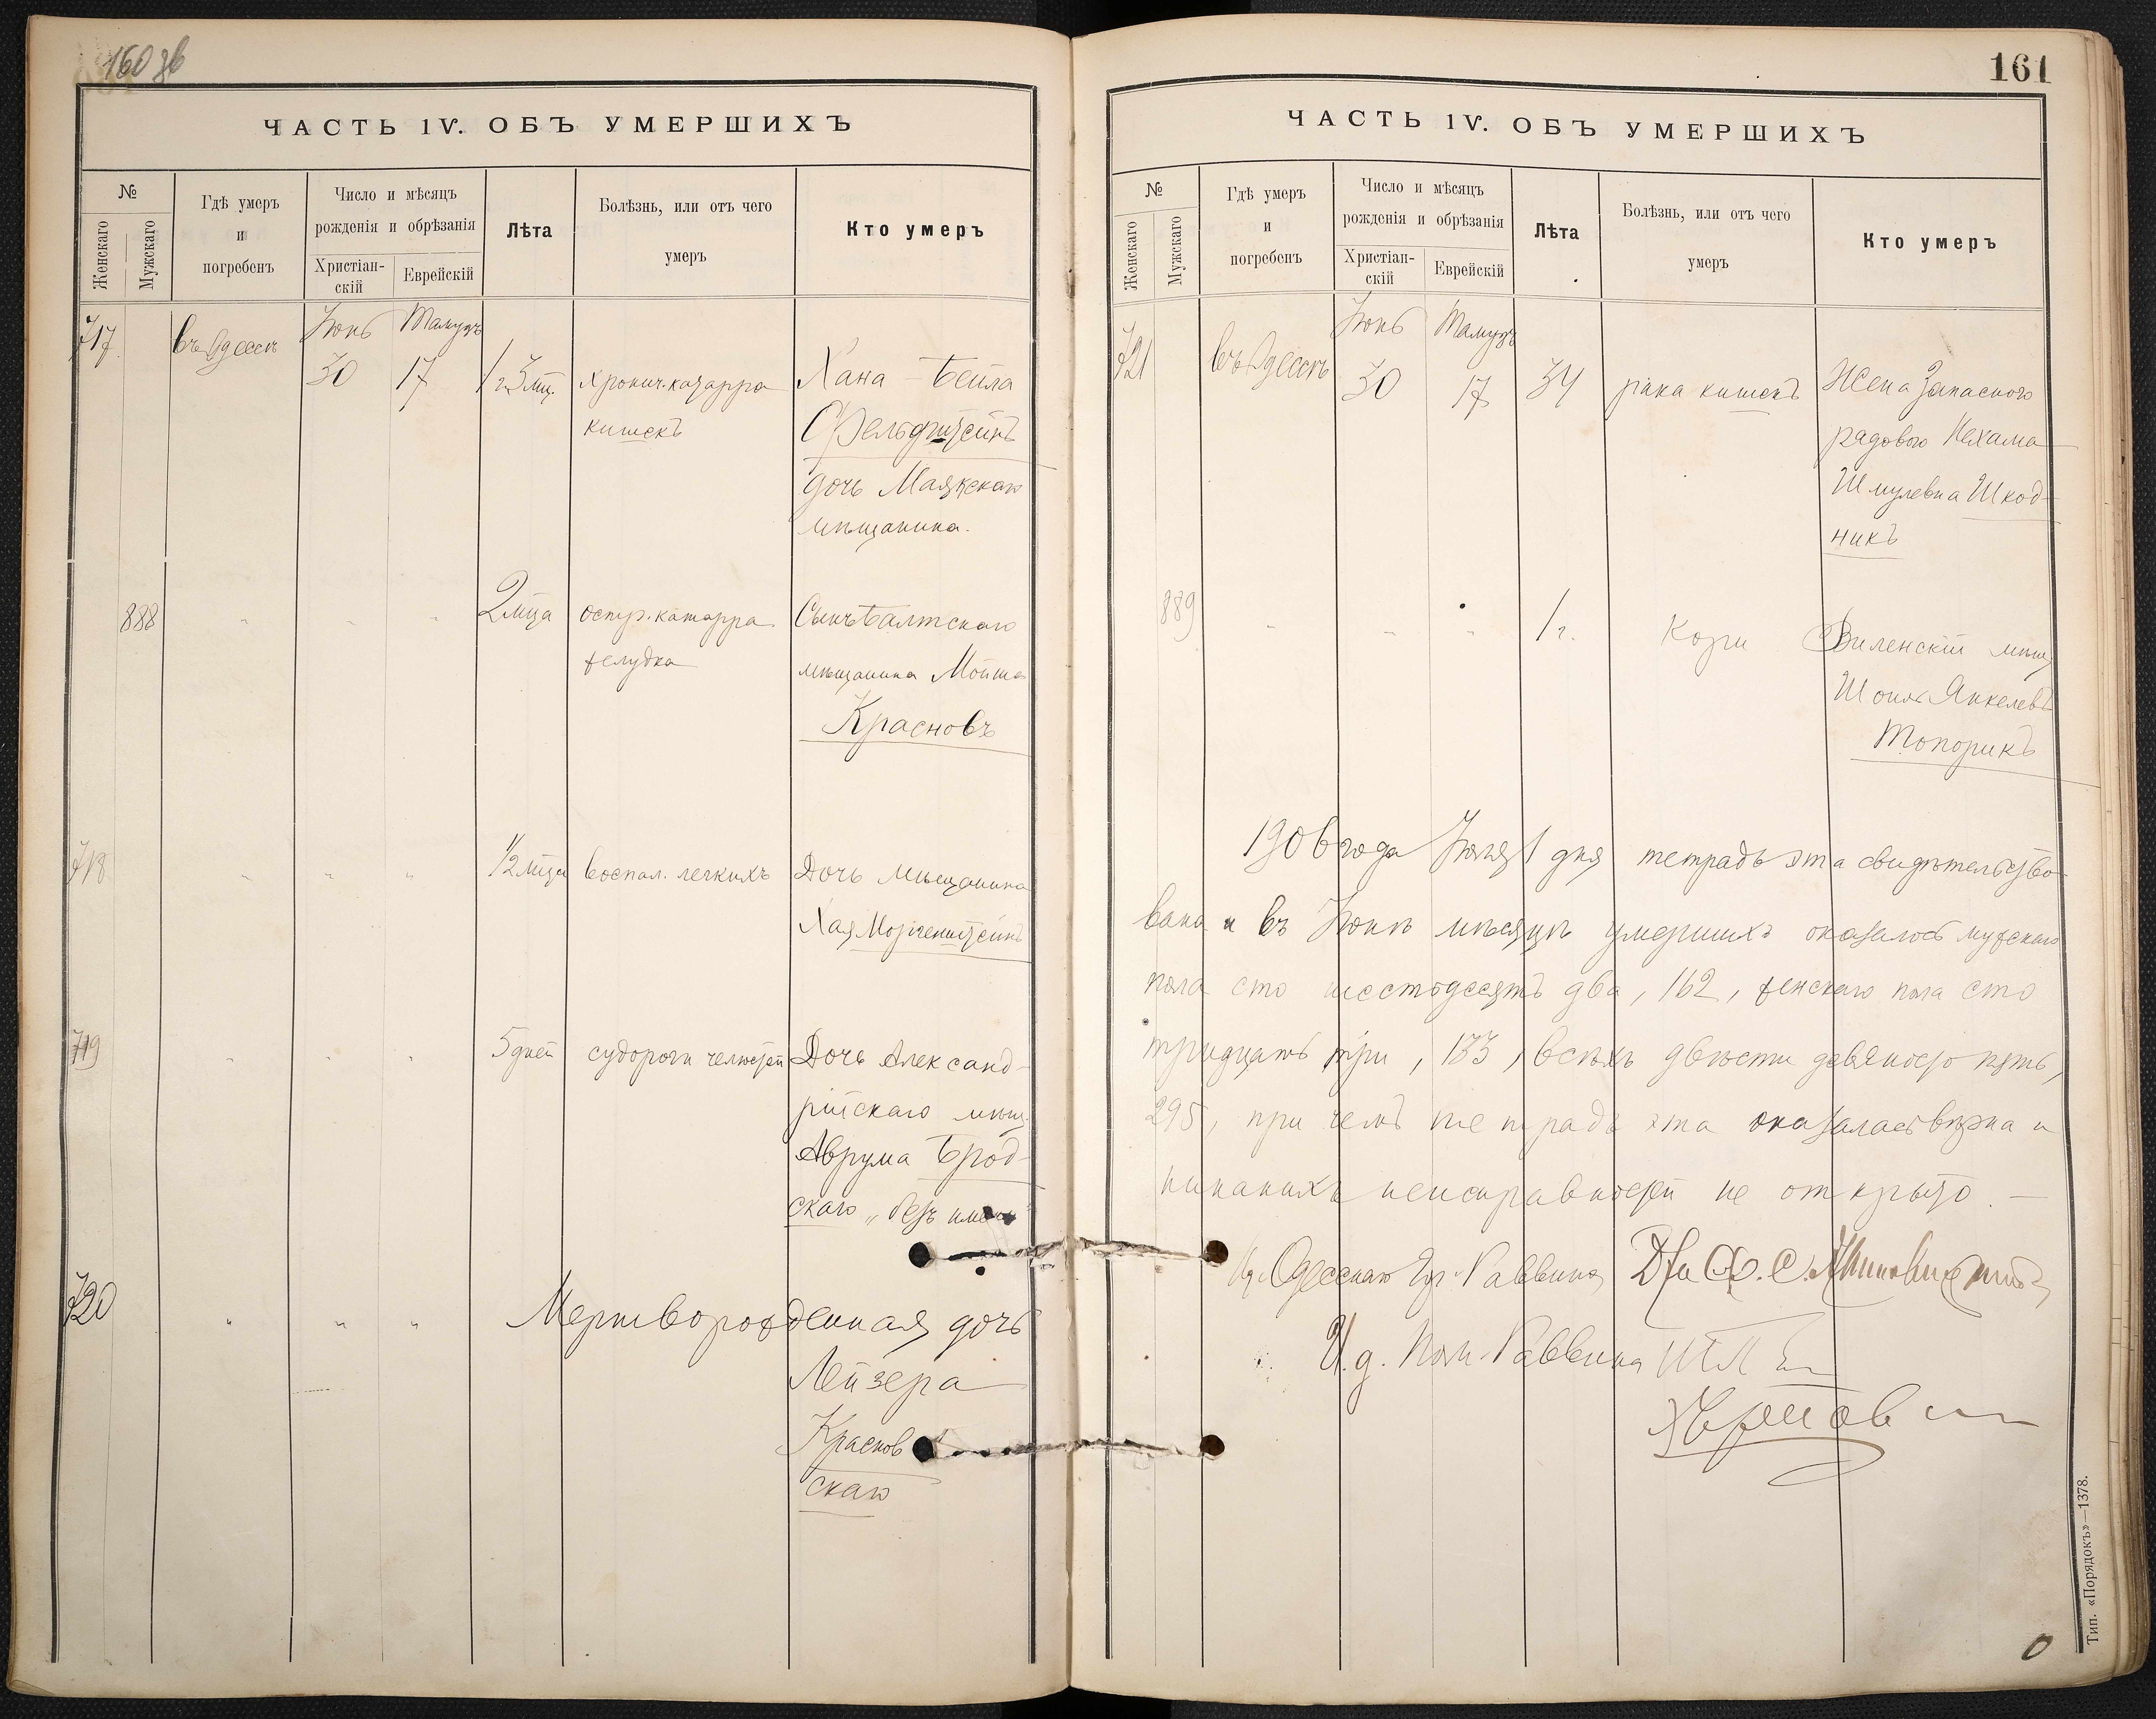 160 зв
ЧАСТЬ IV. ОБЪ УМЕРШИХЪ
№
Женскаго
Мужскаго
Гдѣ умеръ
и
погребенъ
Число и мѣсяцъ
рожденія и обрѣзанія
Христіан-
скій
Еврейскій
Лѣта
Болѣзнь, или отъ чего
умеръ
Кто умеръ
717
въ Одессѣ
Іюнь
30
Тамузъ
17
1 г. 3 мц.
хронич. катарра
кишекъ
Хана-Бейла
Фельдштейнъ
дочь Маякскаго
мѣщанина.
888
" " "
2 мца
остр. катарра
желудка
Сынъ Балтскаго
мѣщанина Мойша
Красновъ
718
" " "
1/2 мца
воспал. легкихъ
Дочь мѣщанина
Хая Моргенштейнъ
719
" " "
5 дней
судороги челюстей
Дочь Александ-
рійскаго мѣщ.
Аврума Брод-
скаго "безъ имени"
720
" " "
Мертворожденная дочь
Лейзера
Краснов
скаго
161
ЧАСТЬ IV. ОБЪ УМЕРШИХЪ
№
Женскаго
Мужскаго
Гдѣ умеръ
и
погребенъ
Число и мѣсяцъ
рожденія и обрѣзанія
Христіан-
скій
Еврейскій
Лѣта
Болѣзнь, или отъ чего
умеръ
Кто умеръ
721
въ Одессѣ
Іюнь
30
Тамузъ
17
34
рака кишекъ
Жена Запасного
рядового Нехама
Шмулевна Шкод-
никъ
889
" " "
1 г.
Кори
Виленскій мѣщ.
Шоил Янкелевъ
Топорикъ
1906 года Іюля 1 дня тетрадь эта свидѣтельство-
вана и въ Іюнѣ мѣсяцѣ умершихъ оказалось мужскаго
пола сто шестьдесятъ два, 162, женскаго пола сто
тридцать три, 133, всѣхъ двѣсти девяносто пять,
295, при чемъ тетрадь эта оказалась вѣрна и
никакихъ неисправностей не открыто. —
Одесскаго Гр. Раввина
И.д. Пом. Раввина
Тип. «Порядокъ»—1378.
0